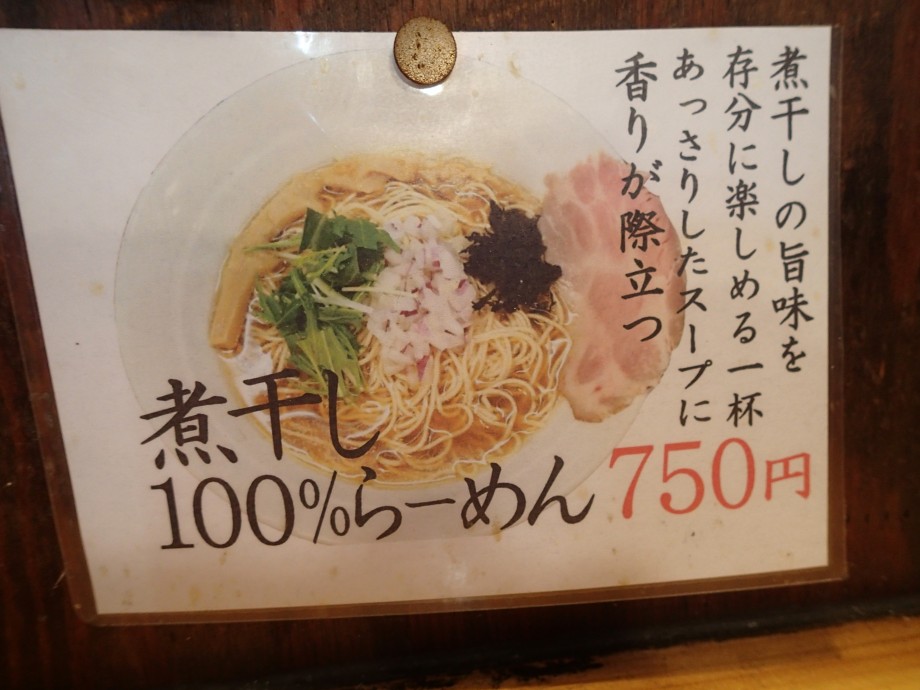 煮干しの旨味を
存分に楽しめる一杯
あっさりしたスープに
香りが際立つ
煮干し
100%らーめん
750円